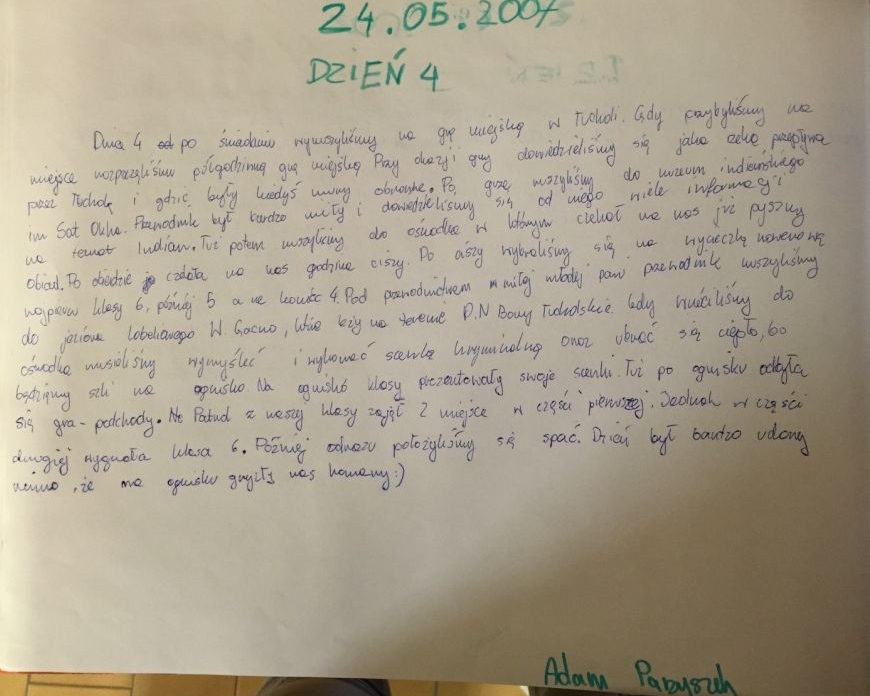 24.05.2007
DZIEŃ 4
Dnia 4 po śniadaniu wyruszyliśmy na grę miejską w Tucholi. Gdy przybyliśmy na
miejsce rozpoczęliśmy półgodzinną grę miejską. Przy okazji gry dowiedzieliśmy się jaka rzeka przepływa
przez Tucholę i gdzie były kiedyś mury obronne. Po grze ruszyliśmy do muzeum indiańskiego
im Sat Okha. Przewodnik był bardzo miły i dowiedzieliśmy się od niego wiele informacji
na temat Indian. Tuż potem ruszyliśmy do ośrodka w którym czekał na nas już pyszny
obiad. Po obiedzie czekała na nas godzina ciszy. Po ciszy wybraliśmy się na wycieczkę rowerową
najpierw klasy 6, później 5 a na koniec 4. Pod przewodnictwem miłej młodej pani przewodnik ruszyliśmy
do jeziora lobeliowego W. Gacno, które leży na terenie P.N Bory Tucholskie. Gdy wróciliśmy do
ośrodka musieliśmy wymyśleć i wykonać scenkę kryminalną oraz ubrać się ciepło, bo
będziemy szli na ognisko. Na ognisku klasy prezentowały swoje scenki. Tuż po ognisku odbyła
się gra - podchody. Patrol z naszej klasy zajął 2 miejsce w części pierwszej. Jednak w części
drugiej wygrała klasa 6. Później odrazu położyliśmy się spać. Dzień był bardzo udany
mimo, że na ognisku gryzły nas komary:)
Adam